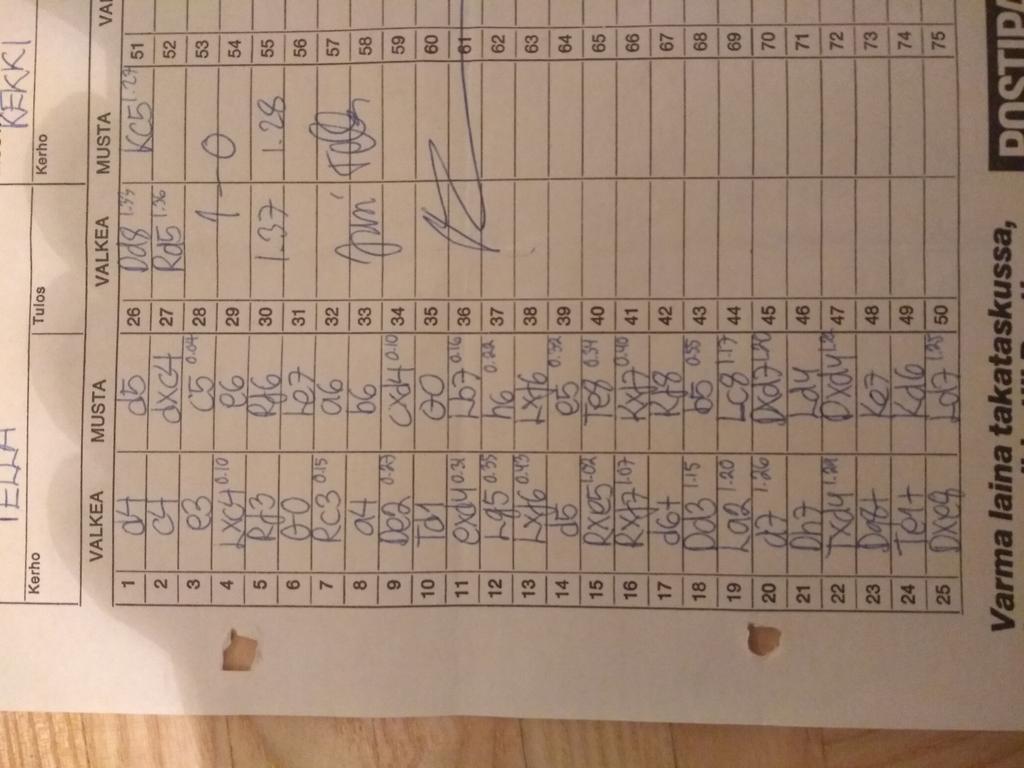 TELLA
KEKKI
Kerho
Tulos
Kerho
VALKEA MUSTA VALKEA MUSTA VAL
1 d4 d5 26 Dd8 1.33 Kc5 1.27 51
2 c4 dxc4 27 Rd5 1.36 52
3 e3 c5 0.04 28 53
4 Lxc4 0.10 e6 29 1-0 54
5 Rf3 Rf6 30 1.37 1.28 55
6 0-0 Le7 31 56
7 Rc3 0.15 a6 32 57
8 a4 b6 33 58
9 De2 0.23 cxd4 0.10 34 59
10 Td1 0-0 35 60
11 exd4 0.31 Lb7 0.16 36 61
12 Lg5 0.35 h6 0.22 37 62
13 Lxf6 0.43 Lxf6 38 63
14 d5 e5 0.32 39 64
15 Rxe5 1.02 Te8 0.34 40 65
16 Rxf7 1.07 Kxf7 0.40 41 66
17 d6+ Kf8 42 67
18 Dd3 1.15 b5 0.55 43 68
19 La2 1.20 Lc8 1.17 44 69
20 d7 1.26 Dxd7 1.20 45 70
21 Dh7 Ld4 46 71
22 Txd4 1.29 Dxd4 1.22 47 72
23 Dg8+ Ke7 48 73
24 Te1+ Kd6 49 74
25 Dxe8 Ld7 1.25 50 75
Varma laina takataskussa,
POSTIPA